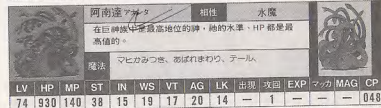 阿南達 アナンタ 相性 水魔
在巨神族中是最高地位的神,祂的水準、HP都是最
高值的。
魔法 マヒかみつき、あばれまわり、テール、
LV HP MP ST IN WS VT AG LK 出現 攻回 EXP マッカ MAG CP
74 930 140 38 15 19 17 20 14 — 1 — — — 048